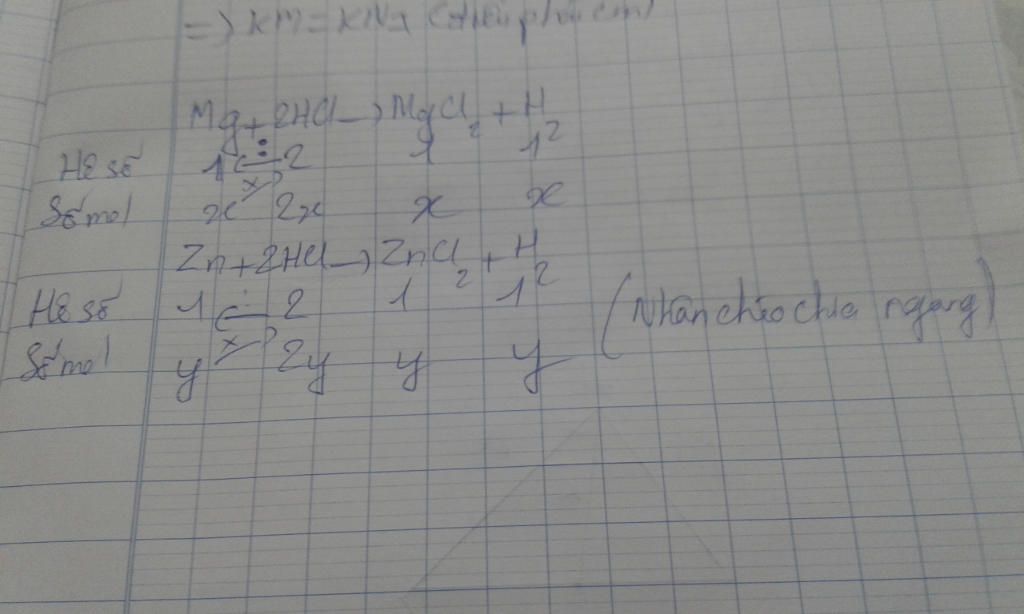 => KM = KN
Mg + 2HCl -> MgCl2 + H2
Hệ số 1 : 2 1 1
Số mol x x 2x x x
Zn + 2HCl -> ZnCl2 + H2
Hệ số 1 : 2 1 1
Số mol y x 2y y y
(Nhân chéo chia ngang)